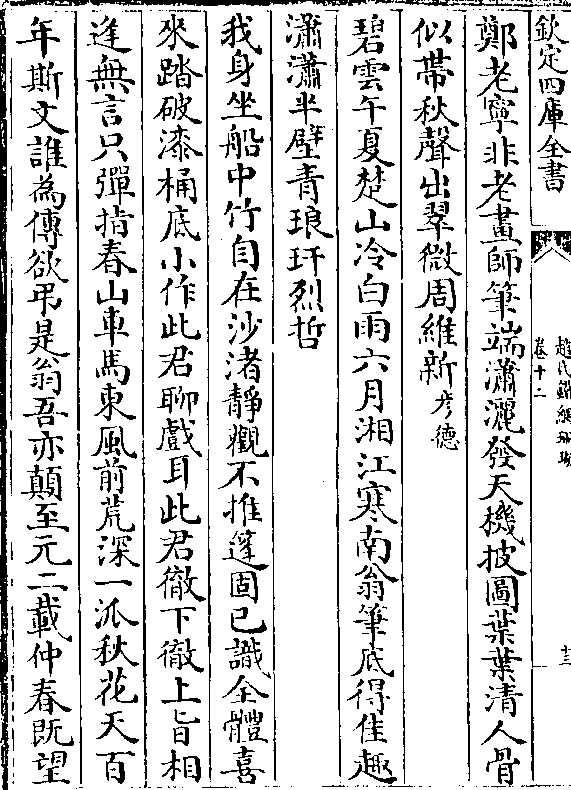 欽定四庫全書
趙氏鐵網珊瑚
卷十二
十三
鄭老寧非老畫師筆端瀟灑發天機披圖葉葉清人骨
似帶秋聲出翠微周維新彦德
碧雲午夏楚山冷白雨六月湘江寒南翁筆底得佳趣
瀟瀟半壁青琅玕烈哲
我身坐船中竹自在沙渚靜觀不推篷固已識全體喜
來踏破漆桶底小作此君聊戲耳此君徹下徹上旨相
逢無言只彈指春山車馬東風前荒深一派秋花天百
年斯文誰為傳欲弔是翁吾亦顛至元二載仲春既望